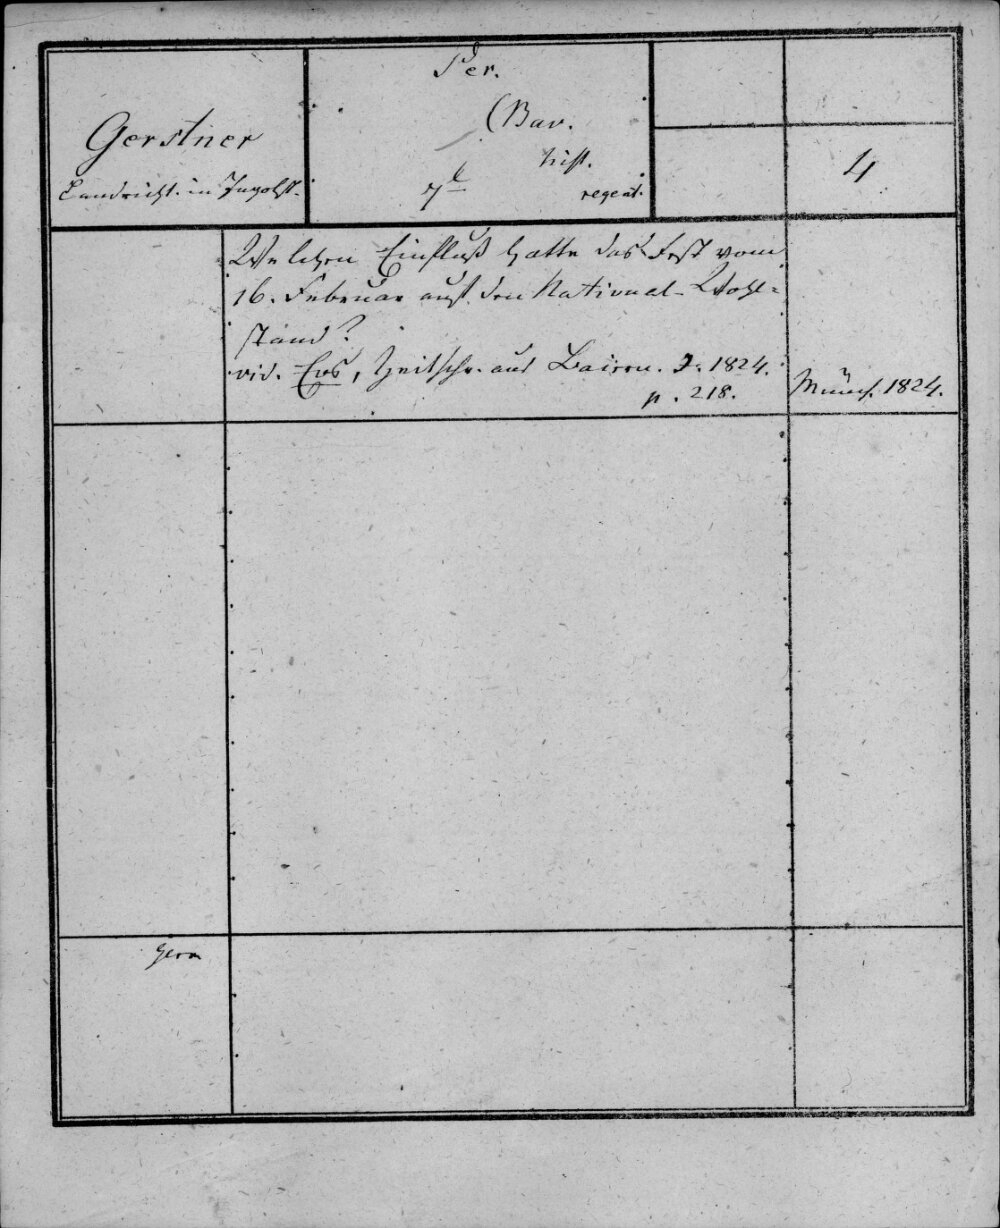 Gerstner
Landricht. in Ingolst.
Per.
(Bav.
hist.
7k
regent.
4
Welchen Einfluß hatte das Fest vom
16. Februar auf den National-Wohl=
stand?
vid. Eos, Zeitschr. aus Baiern. J. 1824.
p. 218.
Münch. 1824.
Germ